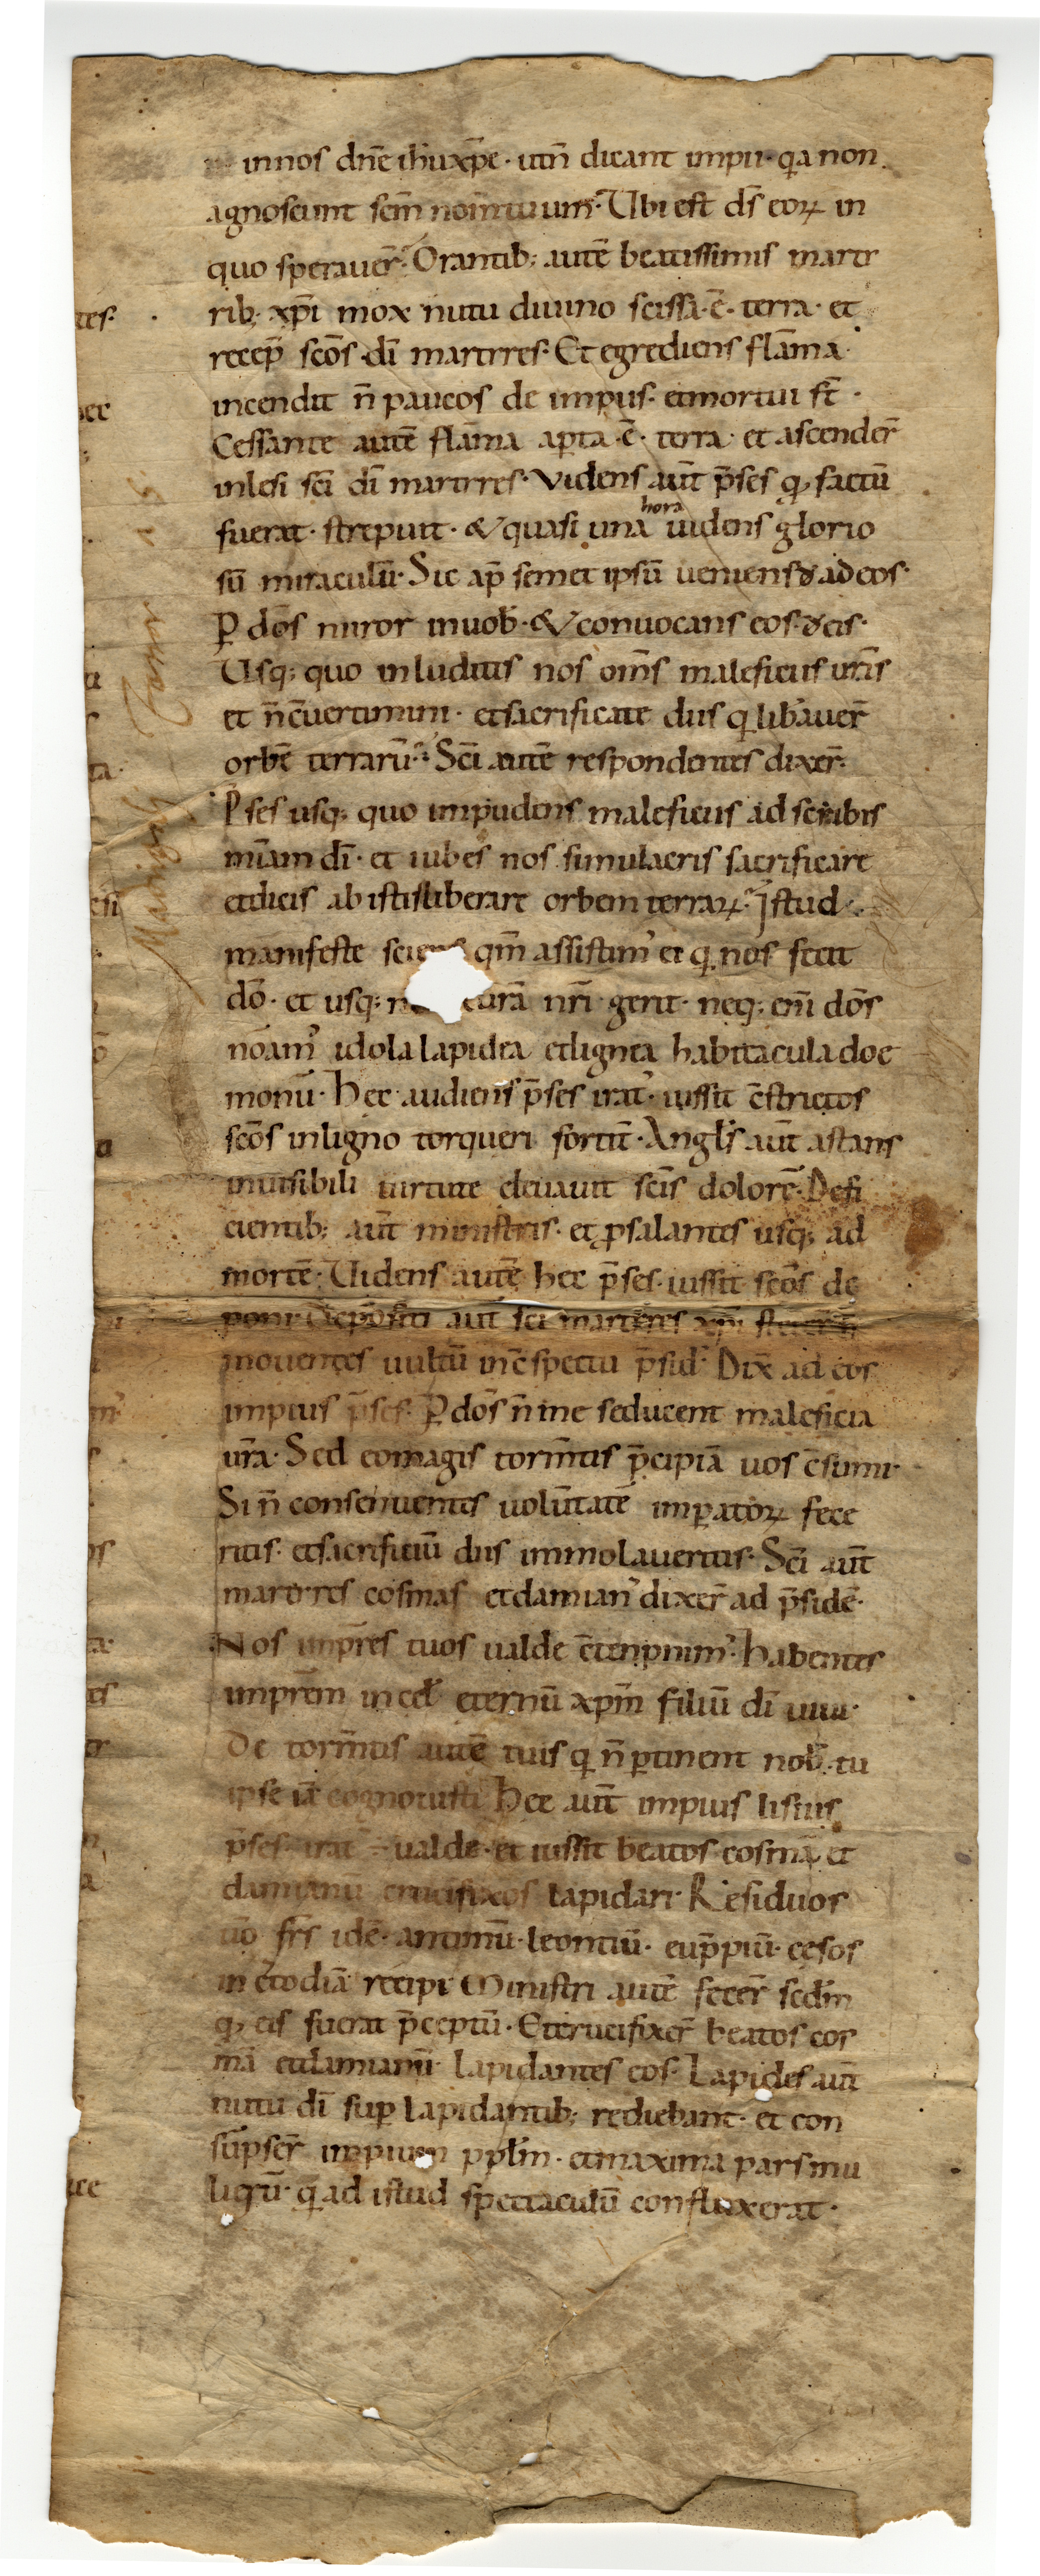 in nos dn̄e ih̄u xp̄e · utn̄ dicant impii · qa non
agnoscunt scm̄ nom̄ tuum · Ubi est ds̄ eoꝝ in
quo speraver̄ · Orantib; autē beatissimis marti
rib; xp̄i mox nutu divino scissa · ē · terra · et
recep̄ scōs dī martires · Et egrediens flāma ·
incendit n̄ paucos de impiis · et mortui st̄ ·
Cessante autē flāma apta · ē · terra · et ascender̄
inlesi scī dī martires · Videns aūt p̄ses qđ factū
fuerat · strepuit · & quasi una hora uidens glorio
sū miraculū · Sic ap̄ semet ipsū veniens · ad eos ·
P̱ dōs miror in vob · & convocans eos · eis ·
Usq; quo inluditis nos om̄s maleficiis ur̄is
et n̄ c̄vertimini · et sacrificate diis q liƀaver̄
orbē terrarū · Scī autē respondentes dixer̄ ·
P̄ses usq; quo impudens maleficiis adscribis
mīam dī · et iubes nos simulacris sacrificare
et dicis ab istis liberare orbem terraꝝ · Istud ·
manifeste sciens qm̄ assistim᾽ ei q nos fecit
dō · et usq; curā nr̄i gerit · neq; eni dōs
nōam᾽ idola lapidea et lignea habitacula doe
moniū · Hec audiens p̄ses irat᾽ · iussit c̄strictos
scōs in ligno torqueri fortit̄ · Angls̄ aūt astans
invisibili virtute elevavit scīs dolorē · Defi
cientib; aūt ministris · et psalantes usq; ad
mortē · Videns autē hec p̄ses · iussit scōs de
poni · Depositi aūt scī martires xp̄i
moventes vultū in c̄spectu p̄sid᾽ · Dix̄ ad eos
impius p̄ses · P̱ dōs n̄ me seducent maleficia
ur̄a · Sed eo magis torm̄tis p̄cipiā vos c̄sumi ·
Si n̄ consenientes volūtatē imp̱atoꝝ fece
ritis · et sacrificiū diis immolaveritis · Scī aūt
martires cosmas et damian᾽ dixer̄ ad p̄sidē ·
Nos imp̱res tuos valde c̄tenpnim᾽ · habentes
imprēm in cel᾽ eternū xp̄m filiū dī vivi ·
De torm̄tis autē tuis q n̄ p̱tinent noƀ · tu
ipse iā cognovisti Hec aūt impius lisias
p̄ses · irat᾽ valde · et iussit beatos · cosmā et
damianū crucifixos lapidari · Residuos
uō frs̄ idē · antimū · leontiū · eup̄piū · cesos
in c̄todiā recipi · Ministri autē fecer̄ sedm̄
qđ eis fuerat p̄ceptū · Et crucifixer̄ beatos cos
mā et damianū · lapidantes eos · Lapides aūt
nutu dī sup̱ lapidantib; rediebant · et con
sūpser̄ impium ppl̄m · et maxima pars mu
lierū · q̄ ad istud spectaculū confluxerat ·